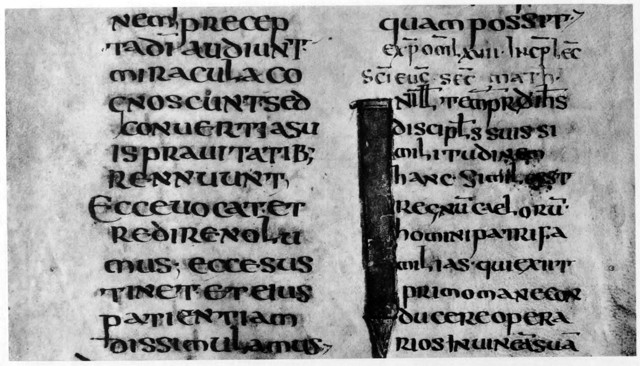 nem precep
ta d̄i audiunt
miracula co
gnoscunt sed
converti a su
is pravitatib;
rennuunt,
Ecce vocat et
redire nolu
mus; ecce sus
tinet et eius
patientiam
dissimulamus,
quam possit
exp oml xviii incp lec
sci eug sec math
IN ill tempr d ihs
discipls suis si
militudinem
hanc simile est
regnū caelorū
homini patri fa
milias qui exiit
primo mane con
ducere opera
rios in vineā suā